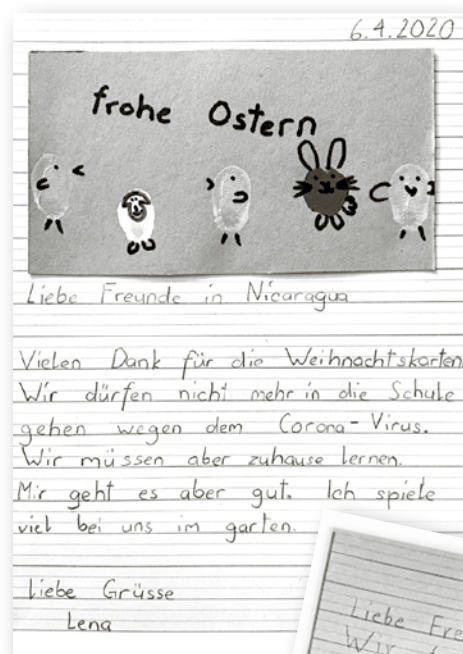 6.4.2020
frohe Ostern
Liebe Freunde in Nicaragua
Vielen Dank für die Weihnachtskarten
Wir dürfen nicht mehr in die Schule
gehen wegen dem Corona-Virus.
Wir müssen aber zuhause lernen.
Mir geht es aber gut. Ich spiele
viel bei uns im garten.
Liebe Grüsse
Lena
Liebe Fre
Wir